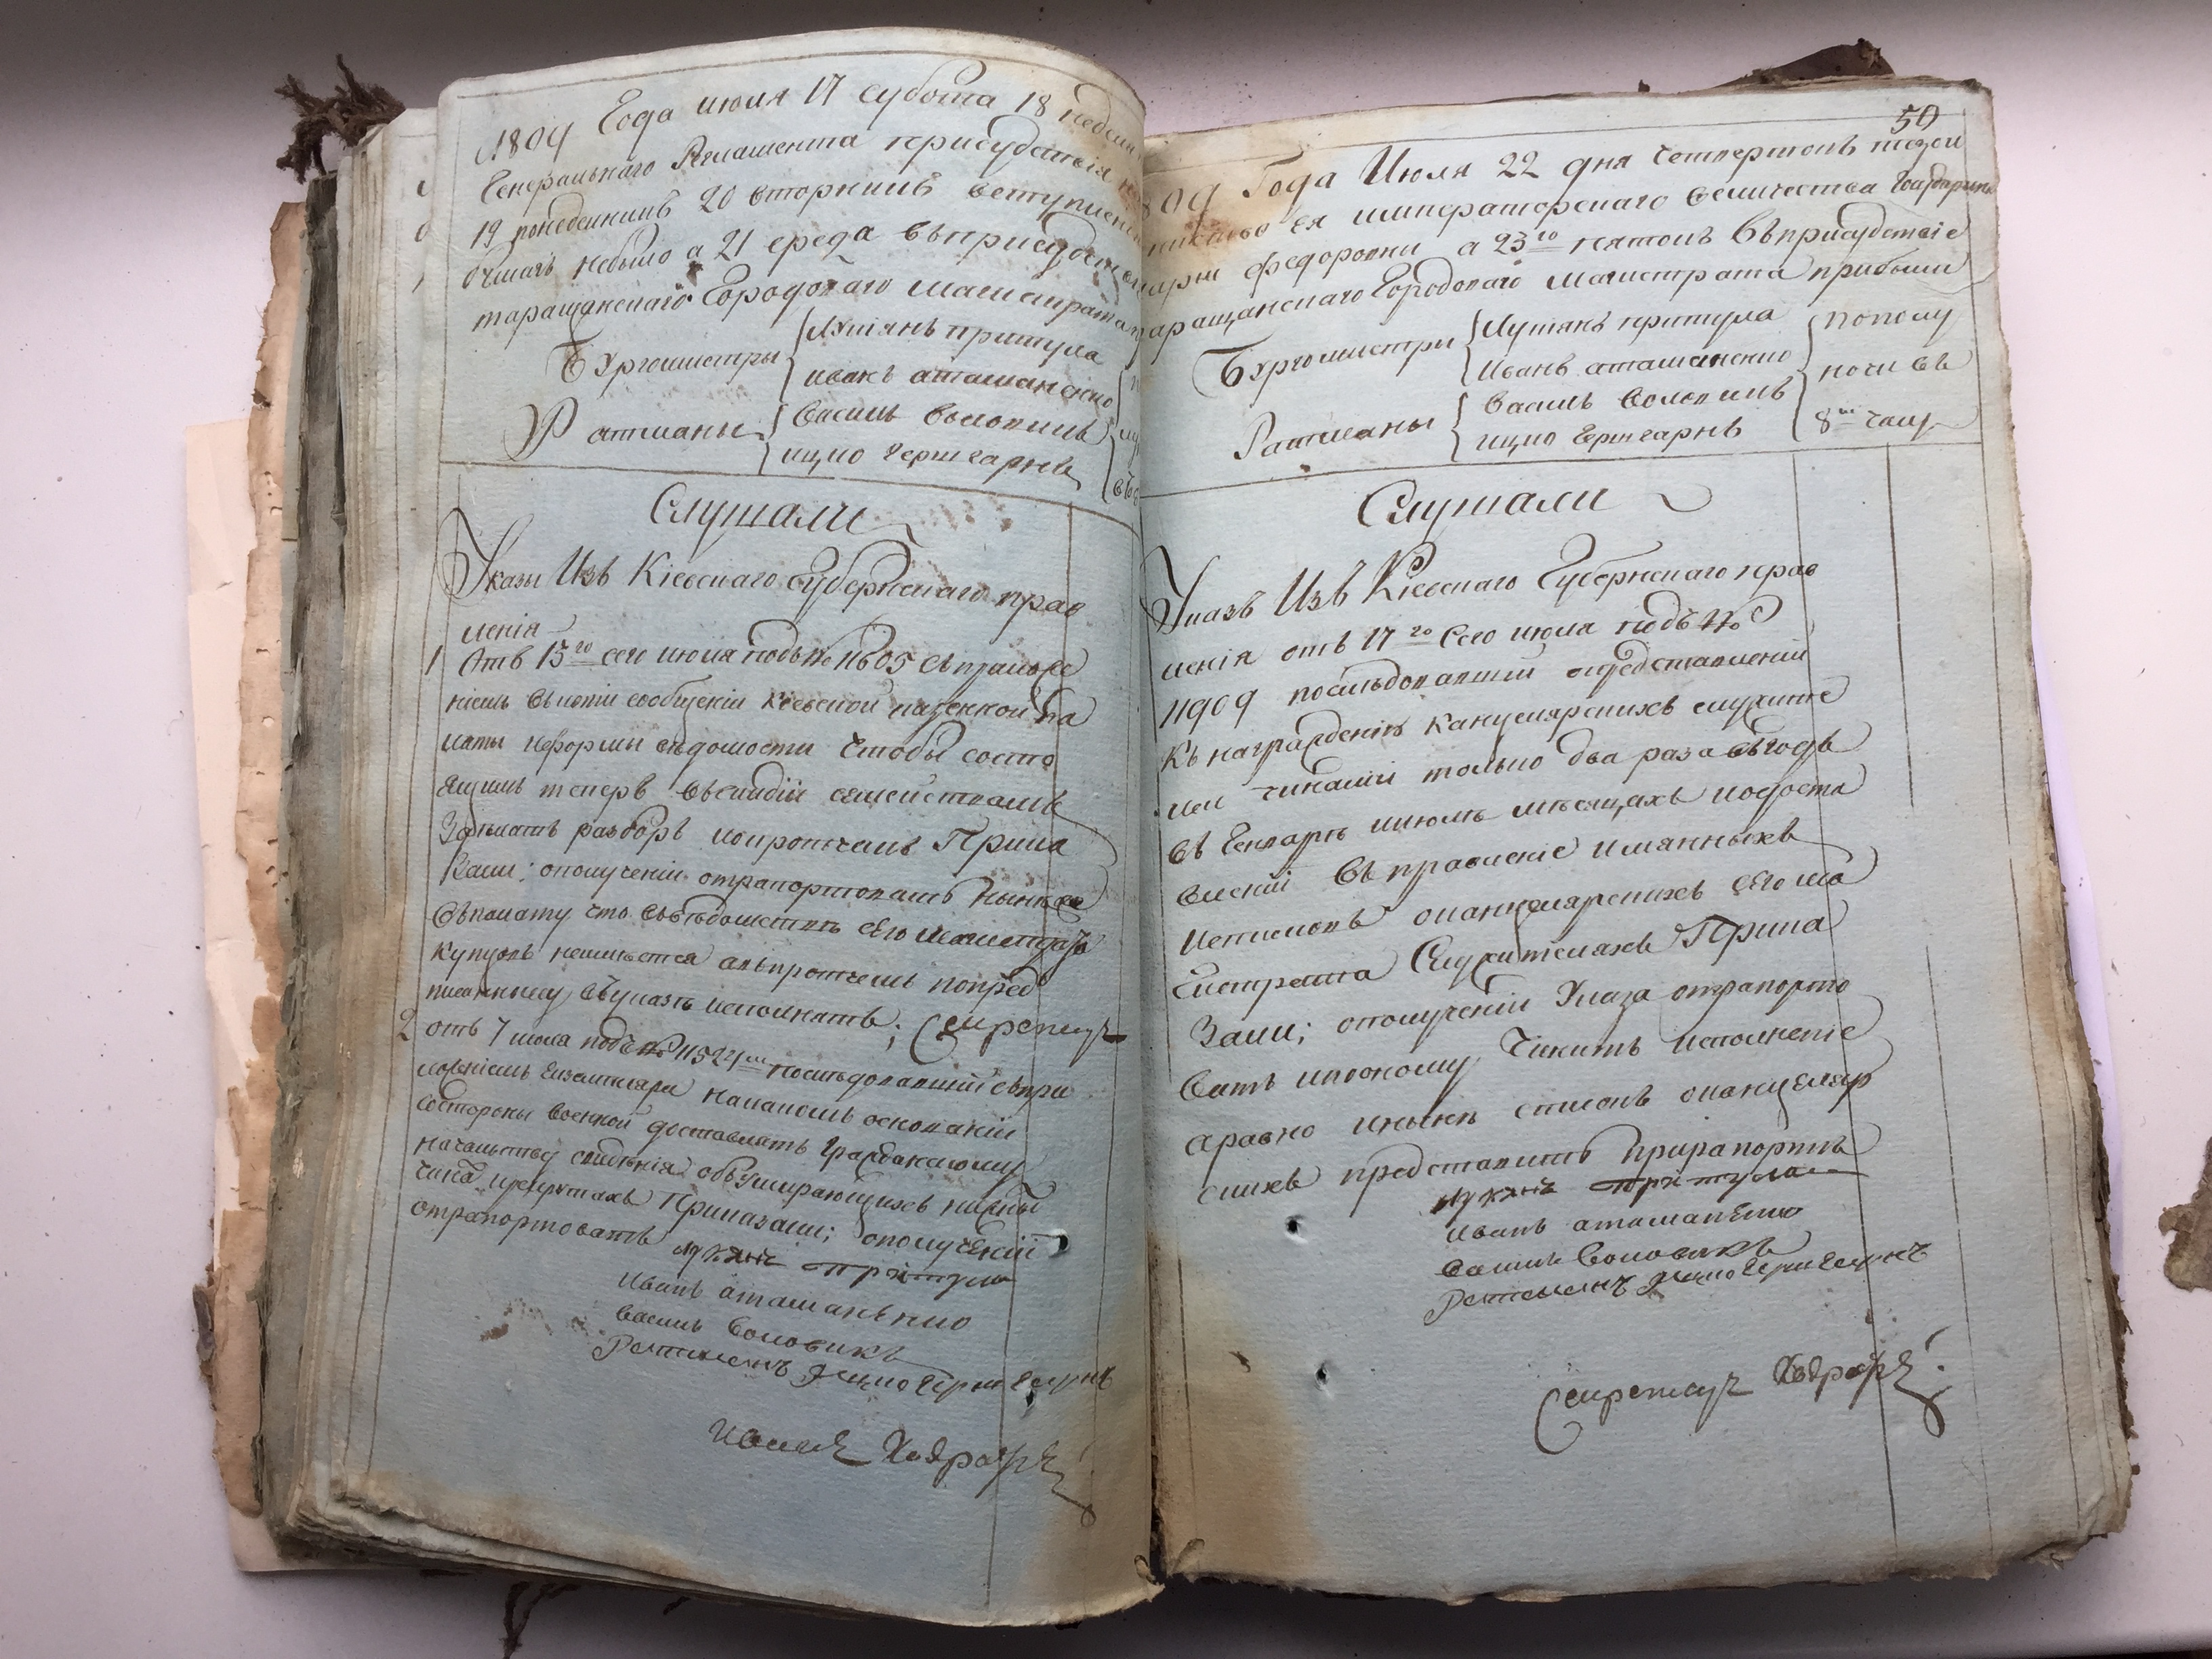 1809 Года июля 17 субота 18 неделя
Генеральнаго Регламента присудствія
19 понеделникъ 20 вторникъ вступлени
небыло а 21 среда Въприсудств
таращанскаго Городоваго магистрата
Бургомистры Лукіянъ притула
иванъ атаманенко
Ратманы Василь Воловикъ
ицко гершгарнъ
Слушали
Указы Изъ Кіевскаго Губернскаго прав
ленія
1 Отъ 15го сего июля подъ № 11605 Съприложе
ніемъ Съкопіи сообщенія Кіевской казенной па
латы иформы ведомости Чтобы состо
ящимъ теперъ семействамъ
Зделать разборъ ипротчемъ Прика
Зали: ополученіи отрапортовать
Съполату что Съведомстве сего магистрата
Купцовъ неимеется авпротчемъ попред
писанному Въуказе исполнять; Секретарь
2 отъ 7 июля подъ № 11524м последовавшій Съпри
ложеніемъ Екземпляра накакомъ основаніи
Состороны Военной доставлять Гражданскому
начальству сведенія обумирающихъ нижны
чина ирекрутахъ Приказали; ополученіи
отрапортовать Лукянъ притула
Иванъ атаманенко
Василь Воловикъ
Ратманъ Ицко Гершгарнъ
50
1809 Года Июля 22 дня Четвертокъ тезои
менитство Ея императорскаго Величества Государини
марии Федоровни а 23го пятокъ Въприсудствіе
таращанскаго Городоваго Магистрата прибыли
Бургомистри Лукіянъ притула пополу
Иванъ атаманенко ночи въ
Ратманы Василь Воловикъ 8м часу
ицко Гершгарнъ
Слушали
Указъ Изъ Кіевскаго Губернскаго прав
ленія отъ 17го Сего июля подъ №
11909 последовавшій опредставленіи
Къ награжденію Канцелярскихъ служите
лей чинами только два раза въгодъ
въ Генваре июле месяцахъ идоста
вленіи Въ правленіе имянныхъ
Списковъ оканцелярскихъ сего ма
гистрата Служителяхъ Прика
Зали; ополученіи Указа отрапорто
вать ипооному Чинить исполненіе
аравно иныне списокъ оканцеляр
скихъ представить прирапорте
Лукянъ притула
Иванъ атаманенко
Василь Воловикъ
Ратманъ Ицко Гершгарнъ
Секретарь